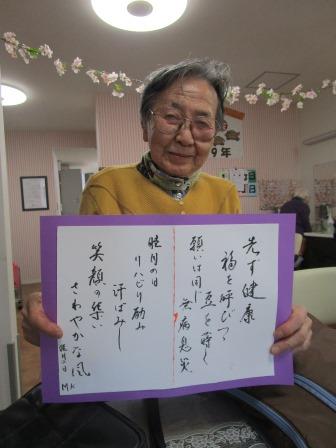 先す健康
福を呼びつゝ
豆を蒔く
願いは同じ
無病息災
睦月の日
リハビリ励み
汗ばみし
笑顔の集い
さわやかな風
睦月の日
MK
9年